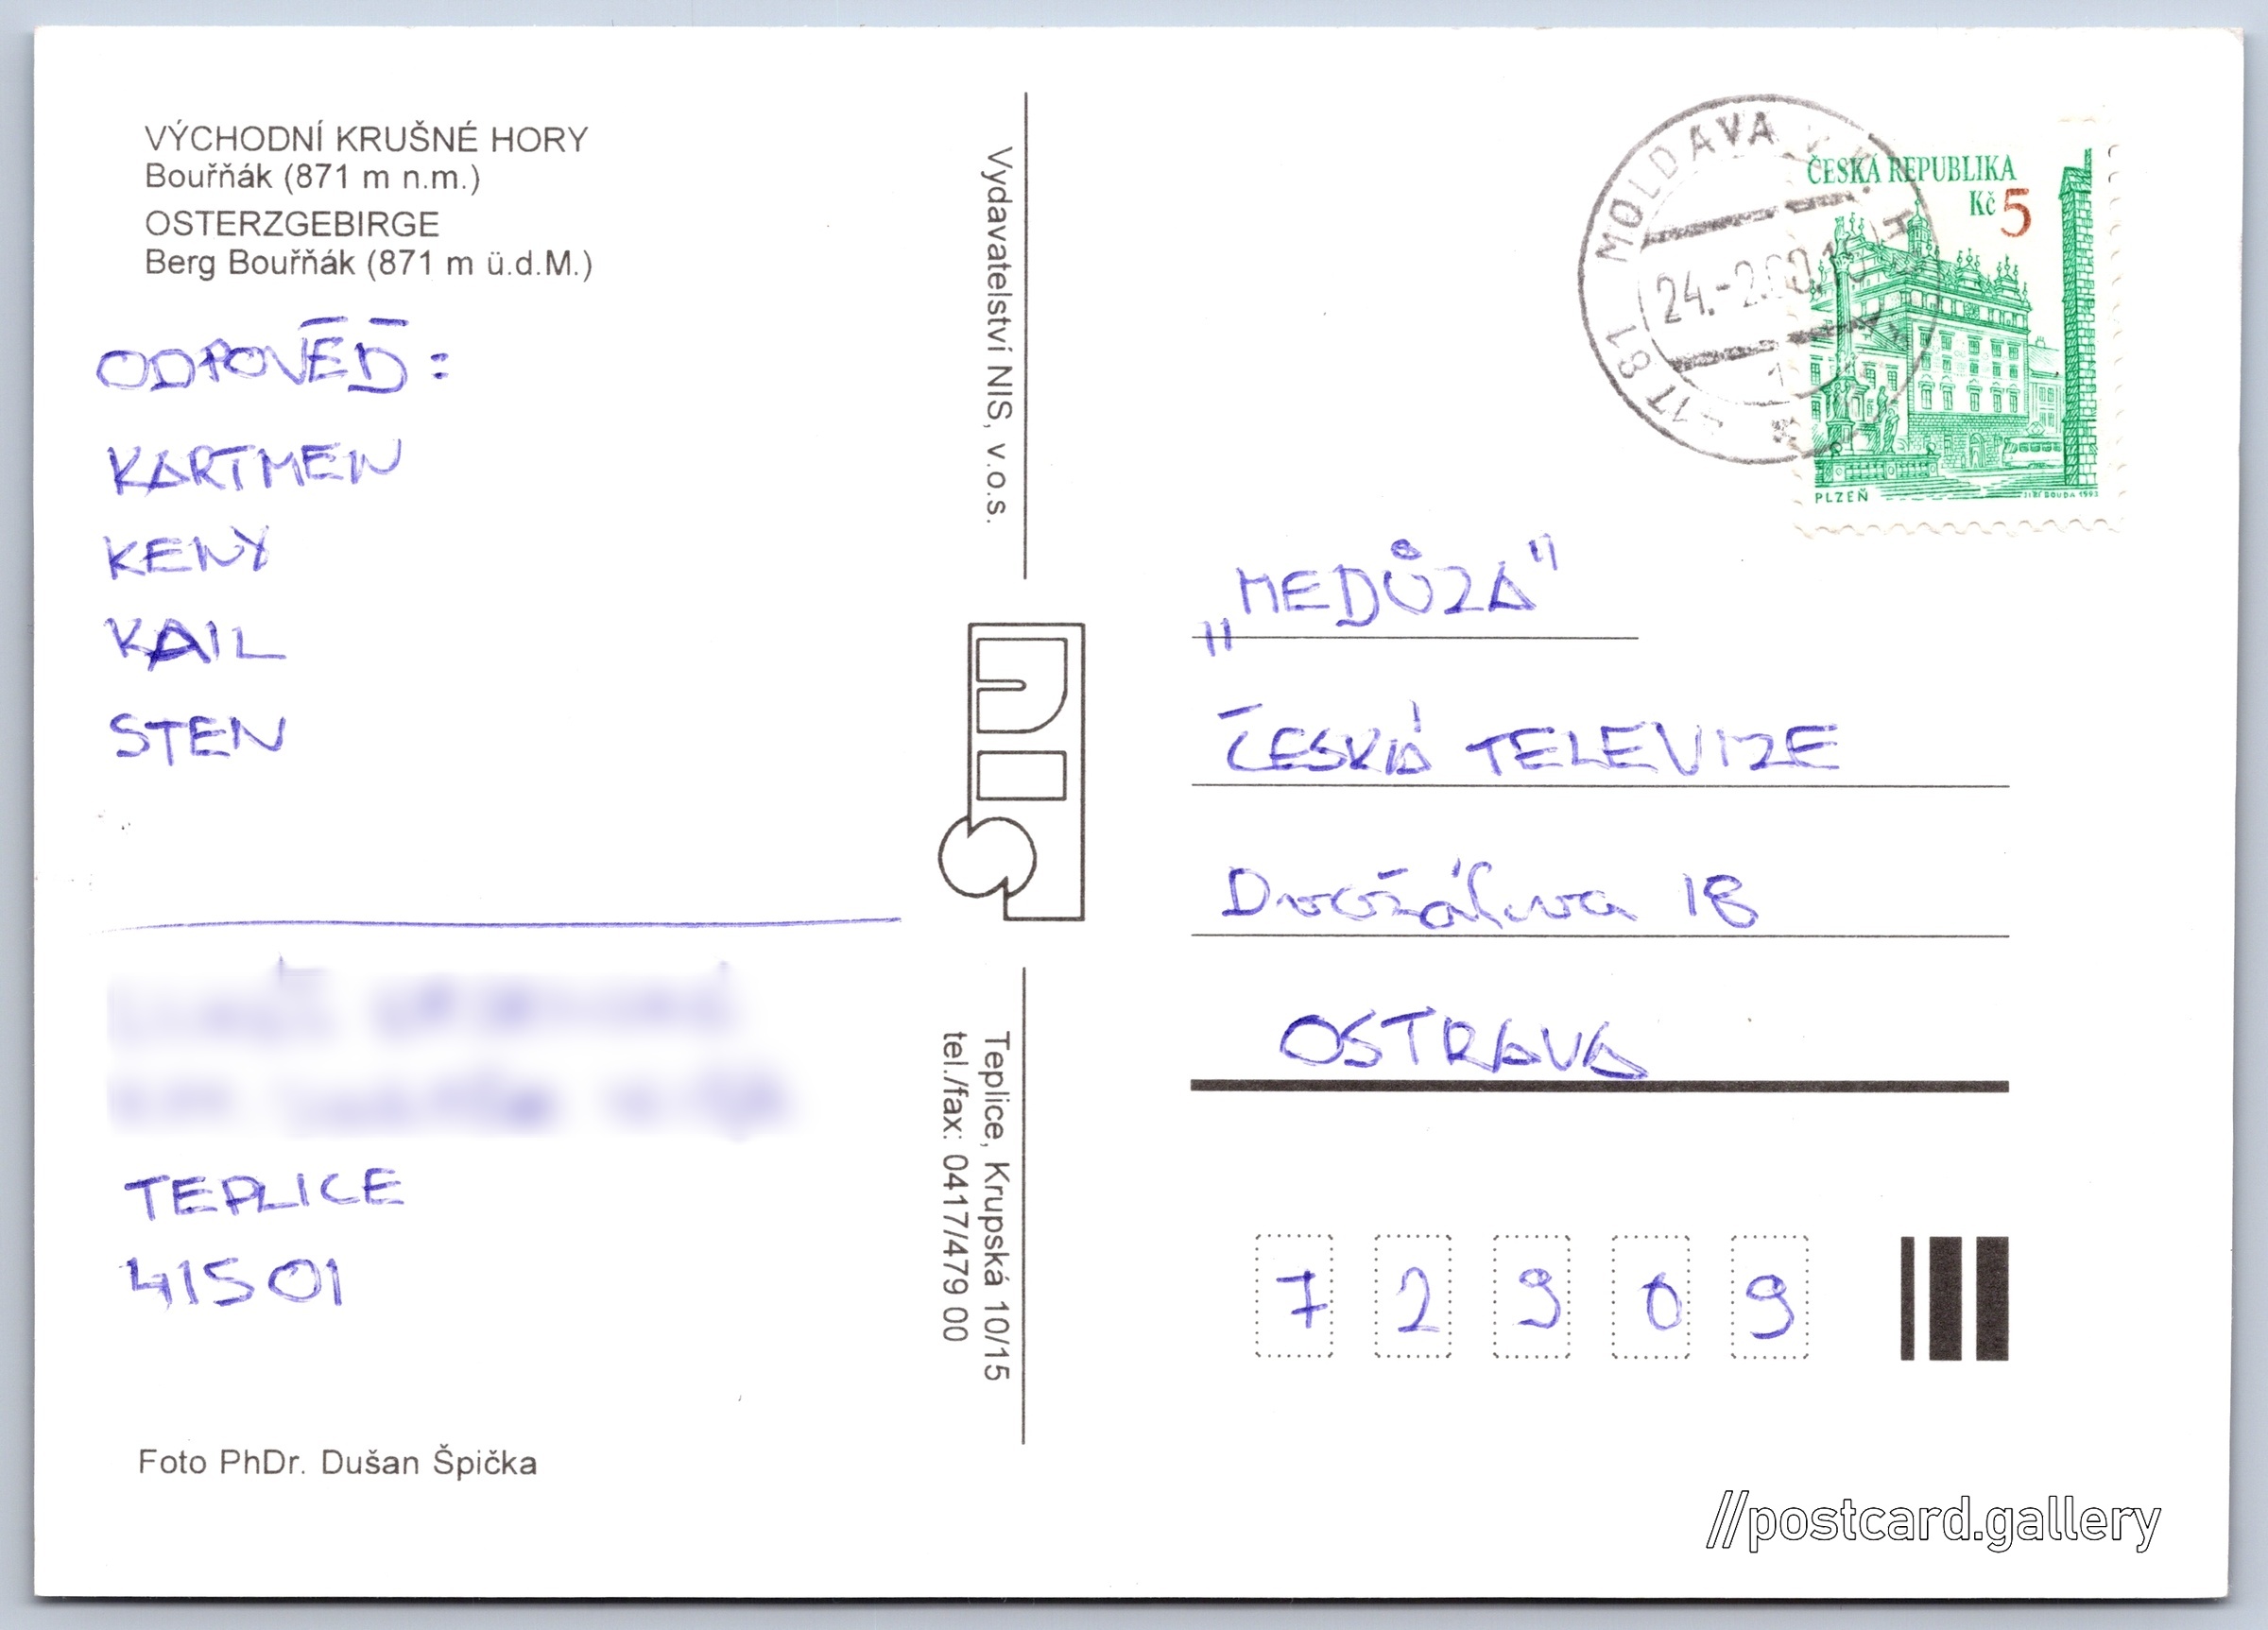 VÝCHODNÍ KRUŠNÉ HORY
Bouřňák (871 m n.m.)
OSTERZGEBIRGE
Berg Bouřňák (871 m ü.d.M.)
ODPOVĚĎ:
KARTMEN
KENY
KAIL
STEN
TEPLICE
41501
Foto PhDr. Dušan Špička
Vydavatelství NIS, v.o.s.
NIS
Teplice, Krupská 10/15
tel./fax: 0417/479 00
MOLDAVA
24.-2.00
417 81
1
ČESKÁ REPUBLIKA
Kč 5
PLZEŇ
JIŘÍ BOUDA 1993
„MEDŮZA"
ČESKÁ TELEVIZE
Dvořákova 18
OSTRAVA
72909
//postcard.gallery